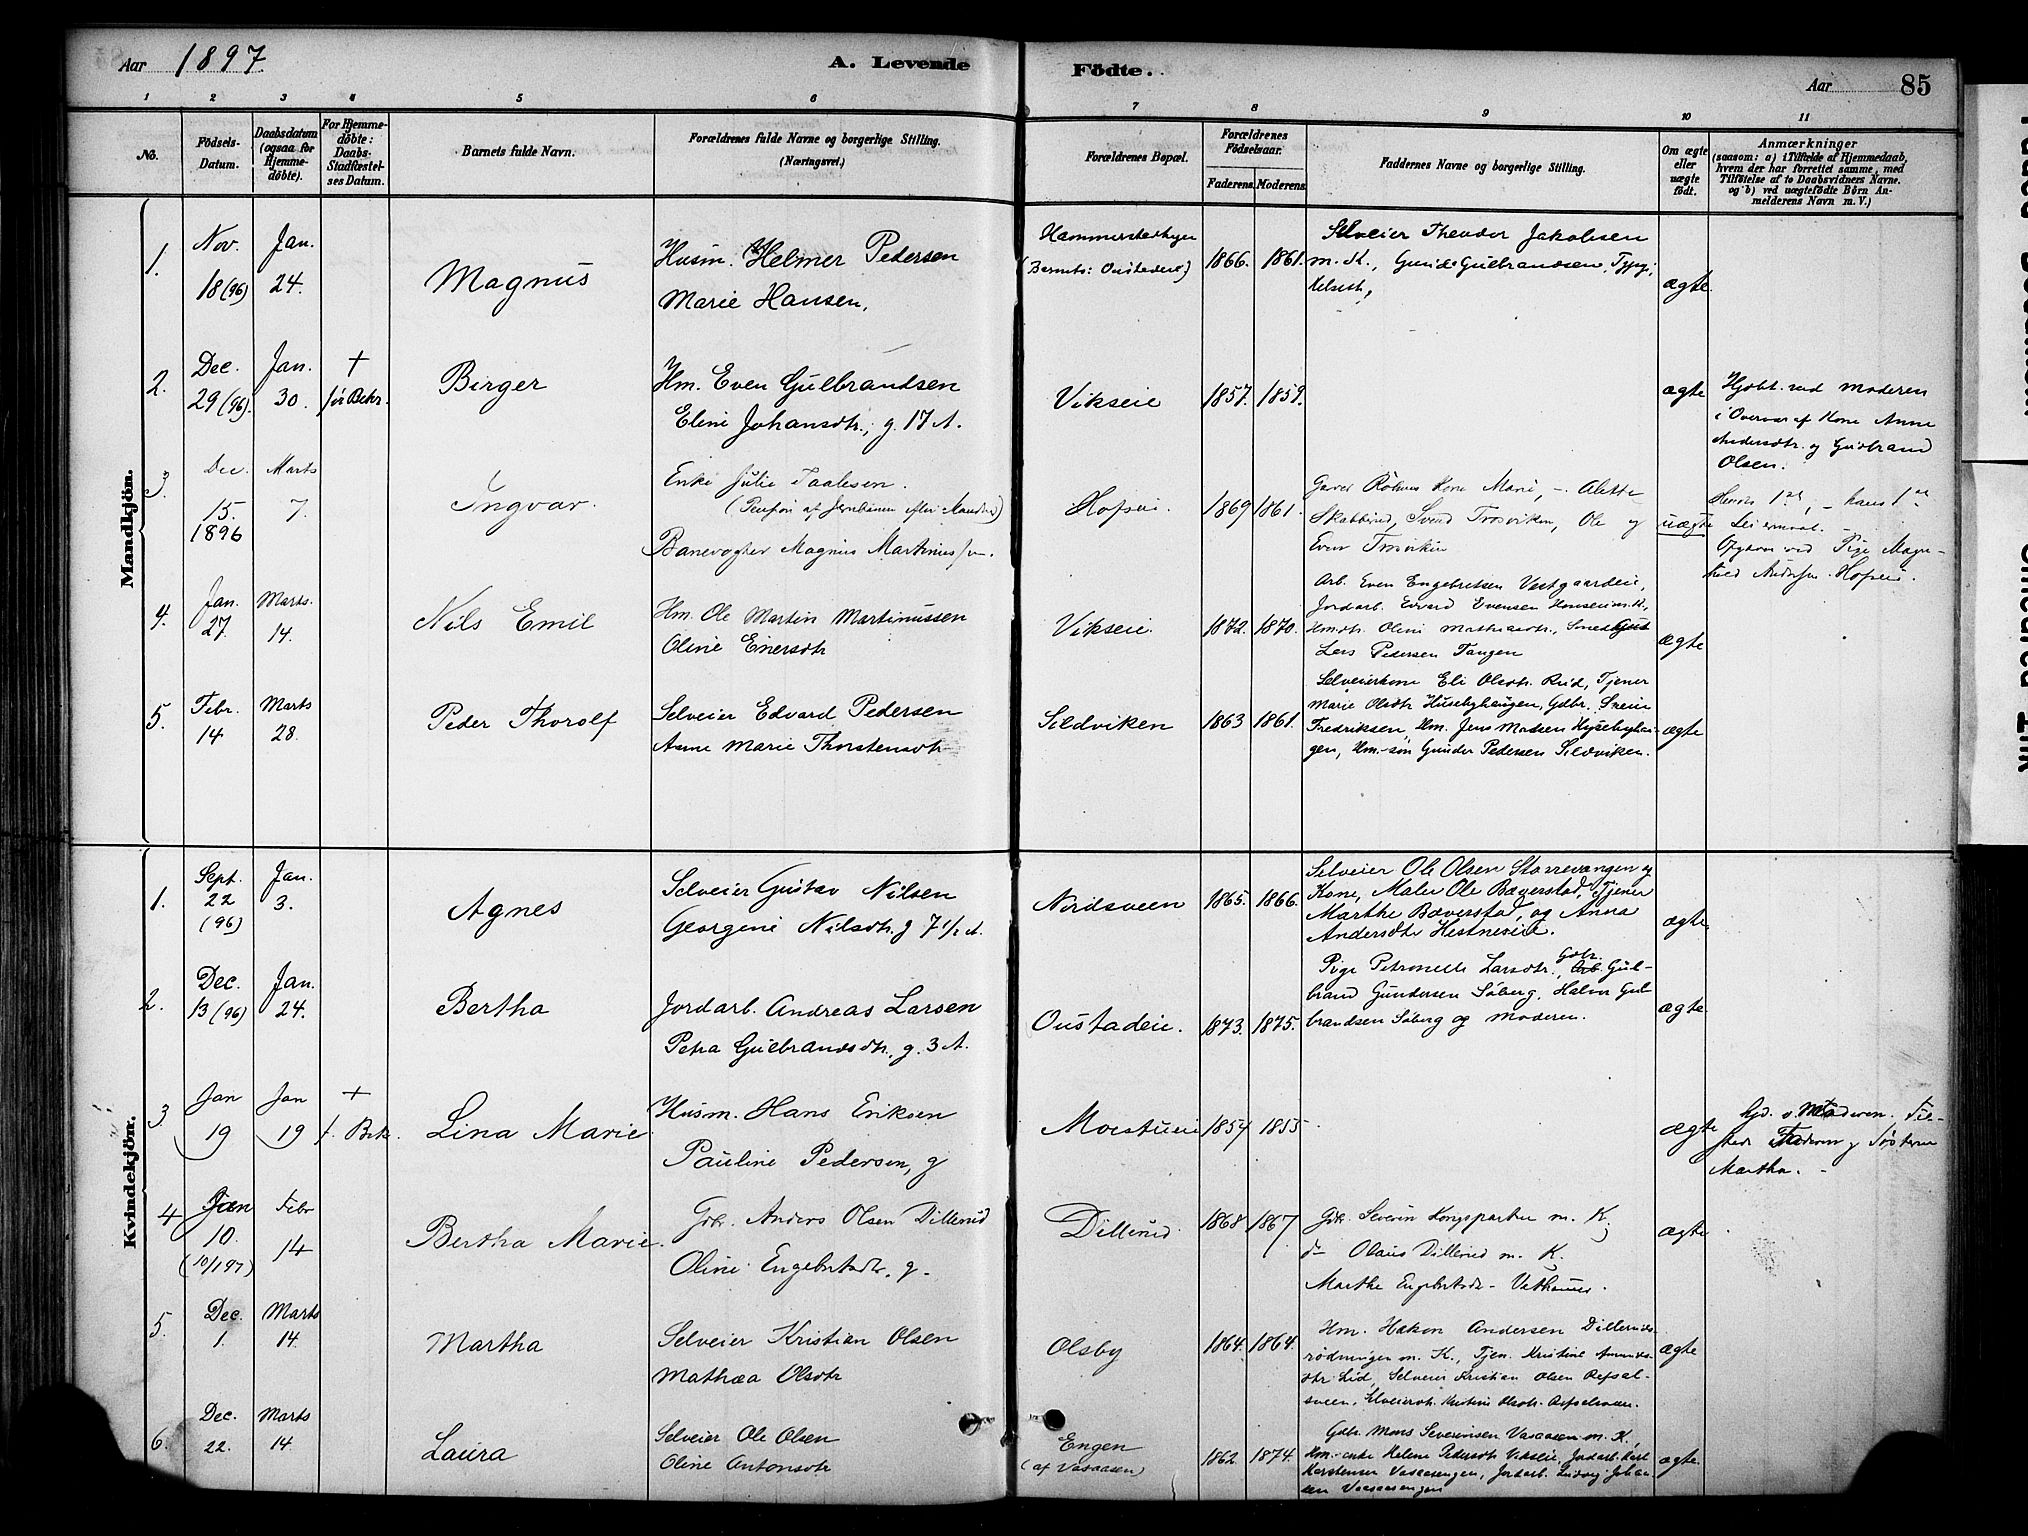 Aar 1897
A. Levende
Födte.
Aar 85
1 2 3 4 5 6 7 8 9 10 11
No.
Födsels-
Datum.
Daabsdatum
(ogsaa for
Hjemme-
döbte).
For Hjemme-
döbte:
Daabs-
Stadfæstel-
ses Datum.
Barnets fulde Navn.
Forældrenes fulde Navne og borgerlige Stilling.
(Næringsvei.)
Forældrenes Bopæl.
Forældrenes
Födselsaar.
Faderens. Moderens.
Faddernes Navne og borgerlige Stilling.
Om ægte
eller
uægte
födt.
Anmærkninger
(saasom: a) i Tilfælde af Hjemmedaab,
hvem der har forrettet samme, med
Tilföielse af to Daabsvidners Navne.
og b) ved uægtefödte Börn An-
melderens Navn m. V.)
Mandkjön.
1.
Nov.
18 (96)
Jan.
24.
Magnus
Husm. Helmer Pedersen
Marie Hansen,
1866. 1861.
Selveier Theodor Jakobsen
m. K., Gulbrandsen,
ægte.
2.
Dec.
29 (96).
Jan.
30.
+
Birger
Hm. Even Gulbrandsen
Eline Johansdtr., g. 17 A.
Vikseie
1857. 1859.
ægte
Hjdbt. ved Moderen
i Overvær af Kone Anne
Andersdtr. og Gudbrand
Olsen.
3
Dec.
15.
1896
Marts
7.
Ingvar.
Enke Julie
Banevogter Magnus
Hofseie.
1869 1861.
Kone Marie, Alette
Ole og
Even
uægte
4.
Jan.
27.
Marts.
14.
Nils Emil
Hm. Ole Martin Martinussen
Oline Enersdtr
Vikseie.
1872. 1870.
Arb. Even Engebretsen Vestgaardeie,
Jordarb. Edvard Evensen
Lars Pedersen Tangen
ægte
5.
Febr.
14
Marts
28.
Peder Thorolf
Selveier Edvard Pedersen
Anne Marie Thorstensdtr
Sildviken
1863 1861.
Selveierkone Eli Olsdtr. Tjener
Marie Olsdtr Husebyhaugen, Gdbr.
Fredriksen, Hm. Jens Madsen
gen, Hm.-søn Gunder Pedersen Sildviken.
ægte
Kvindekjön.
1.
Sept.
22
(96)
Jan.
3.
Agnes
Selveier Gustav Nilsen
Georgine Nilsdtr. g 7 1/2 A.
Nordsveen
1865. 1866.
Selveier Ole Olsen Storrevangen og
Kone, Maler Ole Bæverstad, Tjener
Marthe Bæverstad, og Anna
Andersdtr Hestneseie.
ægte.
2.
Dec.
13 (96)
Jan.
24.
Bertha
Jordarb. Andreas Larsen
Petra Gulbrandsdtr., g. 3 A.
Oustadeie.
1873. 1875.
Pige Petronelle Larsdtr., Gdbr. Gul-
brand Gundersen Søberg, Halvor Gul-
brandsen Søberg og Moderen.
ægte.
3
Jan
19
Jan
19
+
Lina Marie
Husm. Hans Eriksen
Pauline Pedersen, g
1857 1855
ægte
Hjd. v. Moderen. Til-
stede Faderen og Søsteren
Martha.
4
Jan
10.
(10/1 97)
Febr
14
Bertha Marie.
Gbr. Anders Olsen Dillerud
Oline g.
Dillerud.
1868 1867
Gbr. Severin m. K.
do Olaus Dillerud m. K.
Marthe
ægte
5.
Dec.
1.
Marts
14.
Martha
Selveier Kristian Olsen
Mathea Olsdtr
Olsby
1864. 1864.
Hm. Hakon Andersen Dilleruds-
rødningen m. K., Tjen. Kristine
dtr. Lid, Selveier Kristian Olsen Refsal-
sveen, Selveierdtr. Kristine Olsdtr. Refsalsveen.
ægte
6.
Dec.
22.
Marts
14
Laura
Selveier Ole Olsen
Oline Antonsdtr
Engen
(af Vasaasen)
1862 1874.
Gdbr. Mons Severinsen Vasaasen m. K.,
Hm.-enke Helene Pedersdtr Vikseie, Jordarb. Karl
Karstensen Vasaasengen, Jordarb. Ludvig Johan-
sen Vasaasengen
ægte.